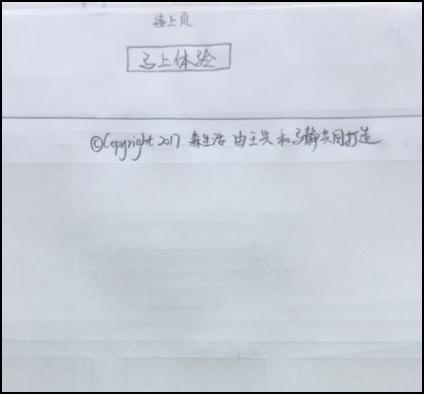 接上页
马上体验
©Copyright 2017 森生活 由王兴和马静共同打造